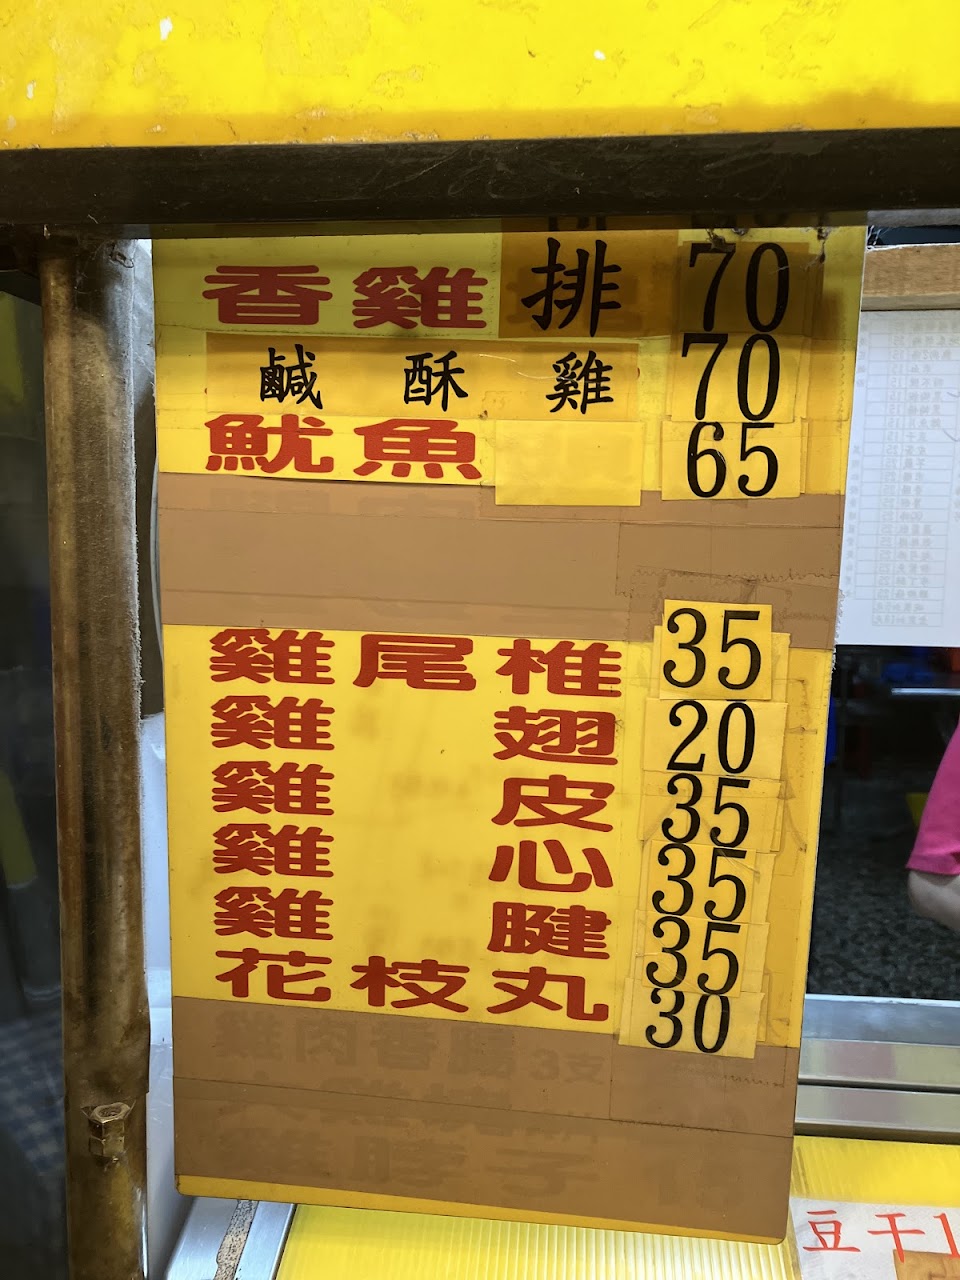 香雞排 70
鹹酥雞 70
魷魚 65
雞尾椎 35
雞翅 20
雞皮 35
雞心 35
雞腱 35
花枝丸 30
雞肉香腸3支
雞脖子
豆干1